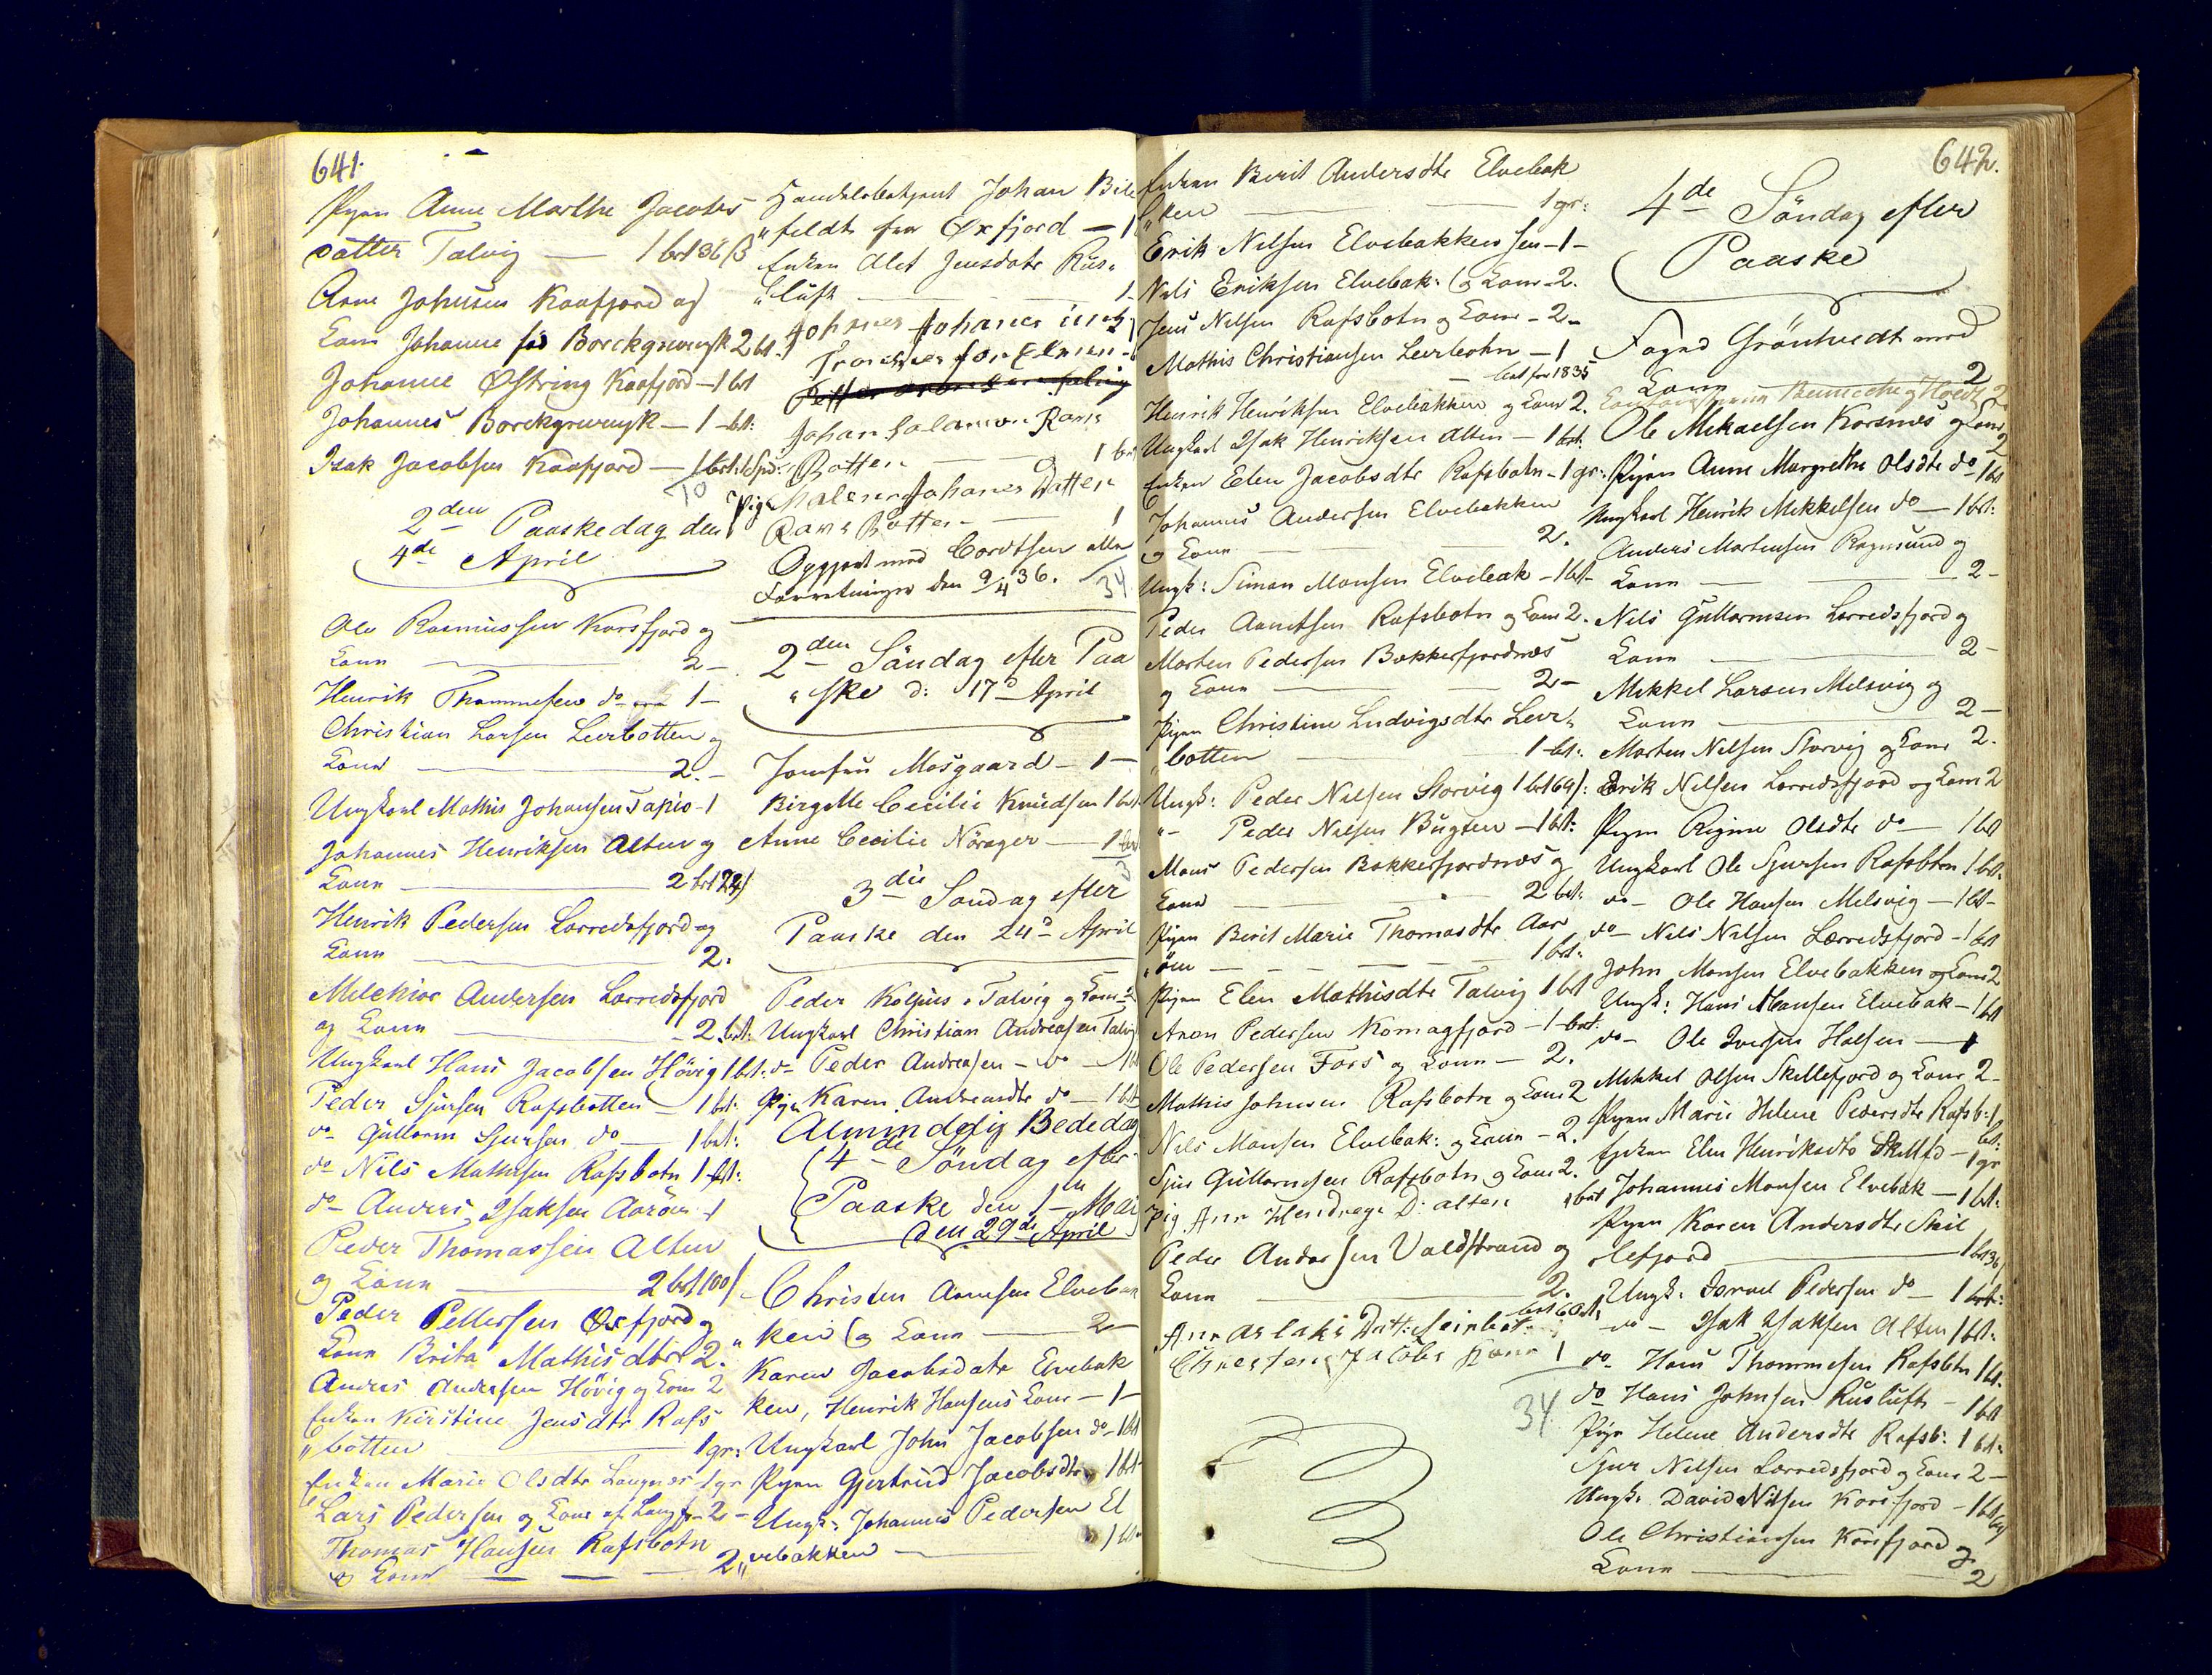 641.
Pigen Anne Marthe Jacobs
datter Talvig — 1 bet 36 ß
Arne Johnsen Kaafjord og
Kone Johanne fød Borckgrewnyk 2 bet.
Johanne Østring Kaafjord — 1 bet
Johannes Borckgrewnyk — 1 - bet:
Isak Jacobsen Kaafjord — 1 bet. 1 Spd:
10
2den Paaskedag den
4de April
Ole Rasmussen Korsfjord og
Kone — 2 —
Henrik Thommesen do 1 —
Christian Larsen Leerbotten og
Kone — 2. —
Ungkarl Mathis Johansen Tapio - 1
Johannes Henriksen Alten og
Kone — 2 bet 24 ß
Henrik Pedersen Lerredsfjord og
Kone — 2.
Melchior Andersen Lerredsfjord
og Kone — 2. bet:
Ungkarl Hans Jacobsen Høvig 1 bet:
Peder Sjursen Rafsbotten — 1 bet:
do Guttorm Sjursen do — 1 bet:
do Nils Mathisen Rafsbotn 1 - bet:
do Anders Isaksen Aarøen - 1
Peder Thomassen Alten
og Kone — 2 bet 100 ß
Peder Pettersen Øxfjord og
Kone Brita Mathisdtr 2.
Anders Andersen Høvig og Kone 2
Enken Kirstine Jensdtr Rafs
" botten — 1 gr:
Enken Marie Olsdtr Langnes - 1 gr
Lars Pedersen og Kone af Langf. - 2 -
Thomas Hansen Rafsbotn
og Kone — 2
Handelsbetjent Johan Bile
" feldt fra Øxfjord — 1
Enken Alet Jensdatr Rus"
" luft — 1 -
Johanes Johanes
Johan Salamon Ravs
Botten — 1 bet
Pige Malena Johanes Datter
Ravs Botten — 1
Opgjort med Cordtsen alle
Forretninger den 9/4 36. 34
2den Søndag efter Paa
" ske d: 17de April
Josefus Mosgaard — 1 —
Birgitte Cecilie Knudsen 1 bet
Anne Cecilie Norager — 1 bet
3
3die Søndag efter
Paaske den 24de April
Peder Koljus Talvig og Kone 2
Ungkarl Christian Andreasen Talvig
do Peder Andreasen — do — 1 bet
Pigen Karen Andreasdtr do — 1 bet
Almindelig Bededag
4de Søndag efter
Paaske den 1ste Mai
den 29de April
Christen Arnesen Elvebak
" ken og Kone — 2 —
Karen Jacobsdatr Elvebak
ken, Henrik Hansens Kone — 1 —
Ungkarl John Jacobsen do - 1 bet
Pigen Gjertrud Jacobsdtr 1 bet
Ungk: Johannes Pedersen El
" vebakken — 1 bet
642.
Enken Berit Andersdtr Elvebak
" ken — 1 gr:
Erik Nilsen Elvebakken sen - 1 -
Nils Eriksen Elvebak: og Kone - 2.
Jens Nilsen Rafsbotn og Kone - 2 -
Mathis Christiansen Leerbotn — 1
bet for 1835
Henrik Henriksen Elvebakken og Kone 2.
Ungkarl Isak Henriksen Alten — 1 bet.
Enken Elen Jacobsdtr Rafsbotn - 1 gr:
Johannes Andersen Elvebakken
og Kone — 2.
Ungk: Simon Monsen Elvebak - 1 bet -
Peder Arnitsen Rafsbotn og Kone 2.
Morten Pedersen Bekkerfjordnæs
og Kone — 2 —
Pigen Christine Ludvigsdtr Leer"
" botten — 1 - bet:
Ungk: Peder Nilsen Storvig 1 bet 69 ß:
" - Peder Nilsen Bugten — 1 bet:
Mons Pedersen Bekkerfjordnæs og
Kone — 2 bet:
Pigen Berit Marie Thomasdtr Aar
" øen — 1 bet:
Pigen Elen Mathisdtr Talvig 1 bet
Aron Pedersen Komagfjord — 1 - bet:
Ole Pedersen Fors og Kone — 2.
Mathis Johnsen Rafsbotn og Kone 2
Nils Monsen Elvebak: og Kone - 2.
Sjur Guttormsen Rafsbotn og Kone 2.
Pig. Ane Hendregs D: alten 1 bet
Peder Andersen Valdstrand og
Kone — 2.
Ane aslaks Dat:
Christens Jacobs Kone 1
34
4de Søndag efter
Paaske
Foged Grønhvedt med
Kone — 2
Ole Mikaelsen Korsnes og Kone 2
Pigen Anne Margrethe Olsdtr do 1 bet
Ungkarl Henrik Mikkelsen do — 1 bet:
Anders Mortensen Rognsund og
Kone — 2 -
Nils Guttormsen Lerredsfjord og
Kone — 2 -
Mikkel Larsen Melsvig og
Kone — 2 —
Morten Nilsen Storvig og Kone 2.
Erik Nilsen Lerredsfjord og Kone 2
Pigen Regine Olsdtr do — 1 bet
Ungkarl Ole Sjursen Rafsbtn 1 bet.
do — Ole Hansen Melsvig — 1 bet -
do — Nils Nilsen Lærredsfjord - 1 bet
John Monsen Elvebakken og Kone 2
Ungk: Hans Hansen Elvebak — 1 bet
do — Ole Iversen Halsen — 1
Mikkel Olsen Skillefjord og Kone 2 -
Pigen Marie Helene Pedersdtr Rafsb: 1 bet:
Enken Elen Henriksdtr Skillfd — 1 gr
Johannes Monsen Elvebak — 1 bet:
Pigen Karen Andersdtr Skil
lefjord — 1 bet 36 ß
Ungk: Israel Pedersen do — 1 bet:
do — Isak Isaksen Alten 1 bet:
do Hans Thommesen Rafsbtn 1 bet.
do Hans Johnsen Rusluft — 1 bet
Pige Helene Andersdtr Rafsb: 1 bet:
Sjur Nilsen Lerredsfjord og Kone 2 —
Ungk: David Nilsen Korsfjord — 1 bet 69 ß
Ole Christiansen Korsfjord og
Kone — 2